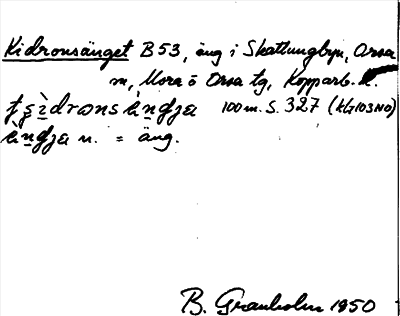 Kidronsänget B 53, äng i Skattungbyn, Orsa
sn, Mora o Orsa tg, Kopparb. l.
100 m. S. 327 (kG103NO)
n. = äng.
B. Granholm 1950